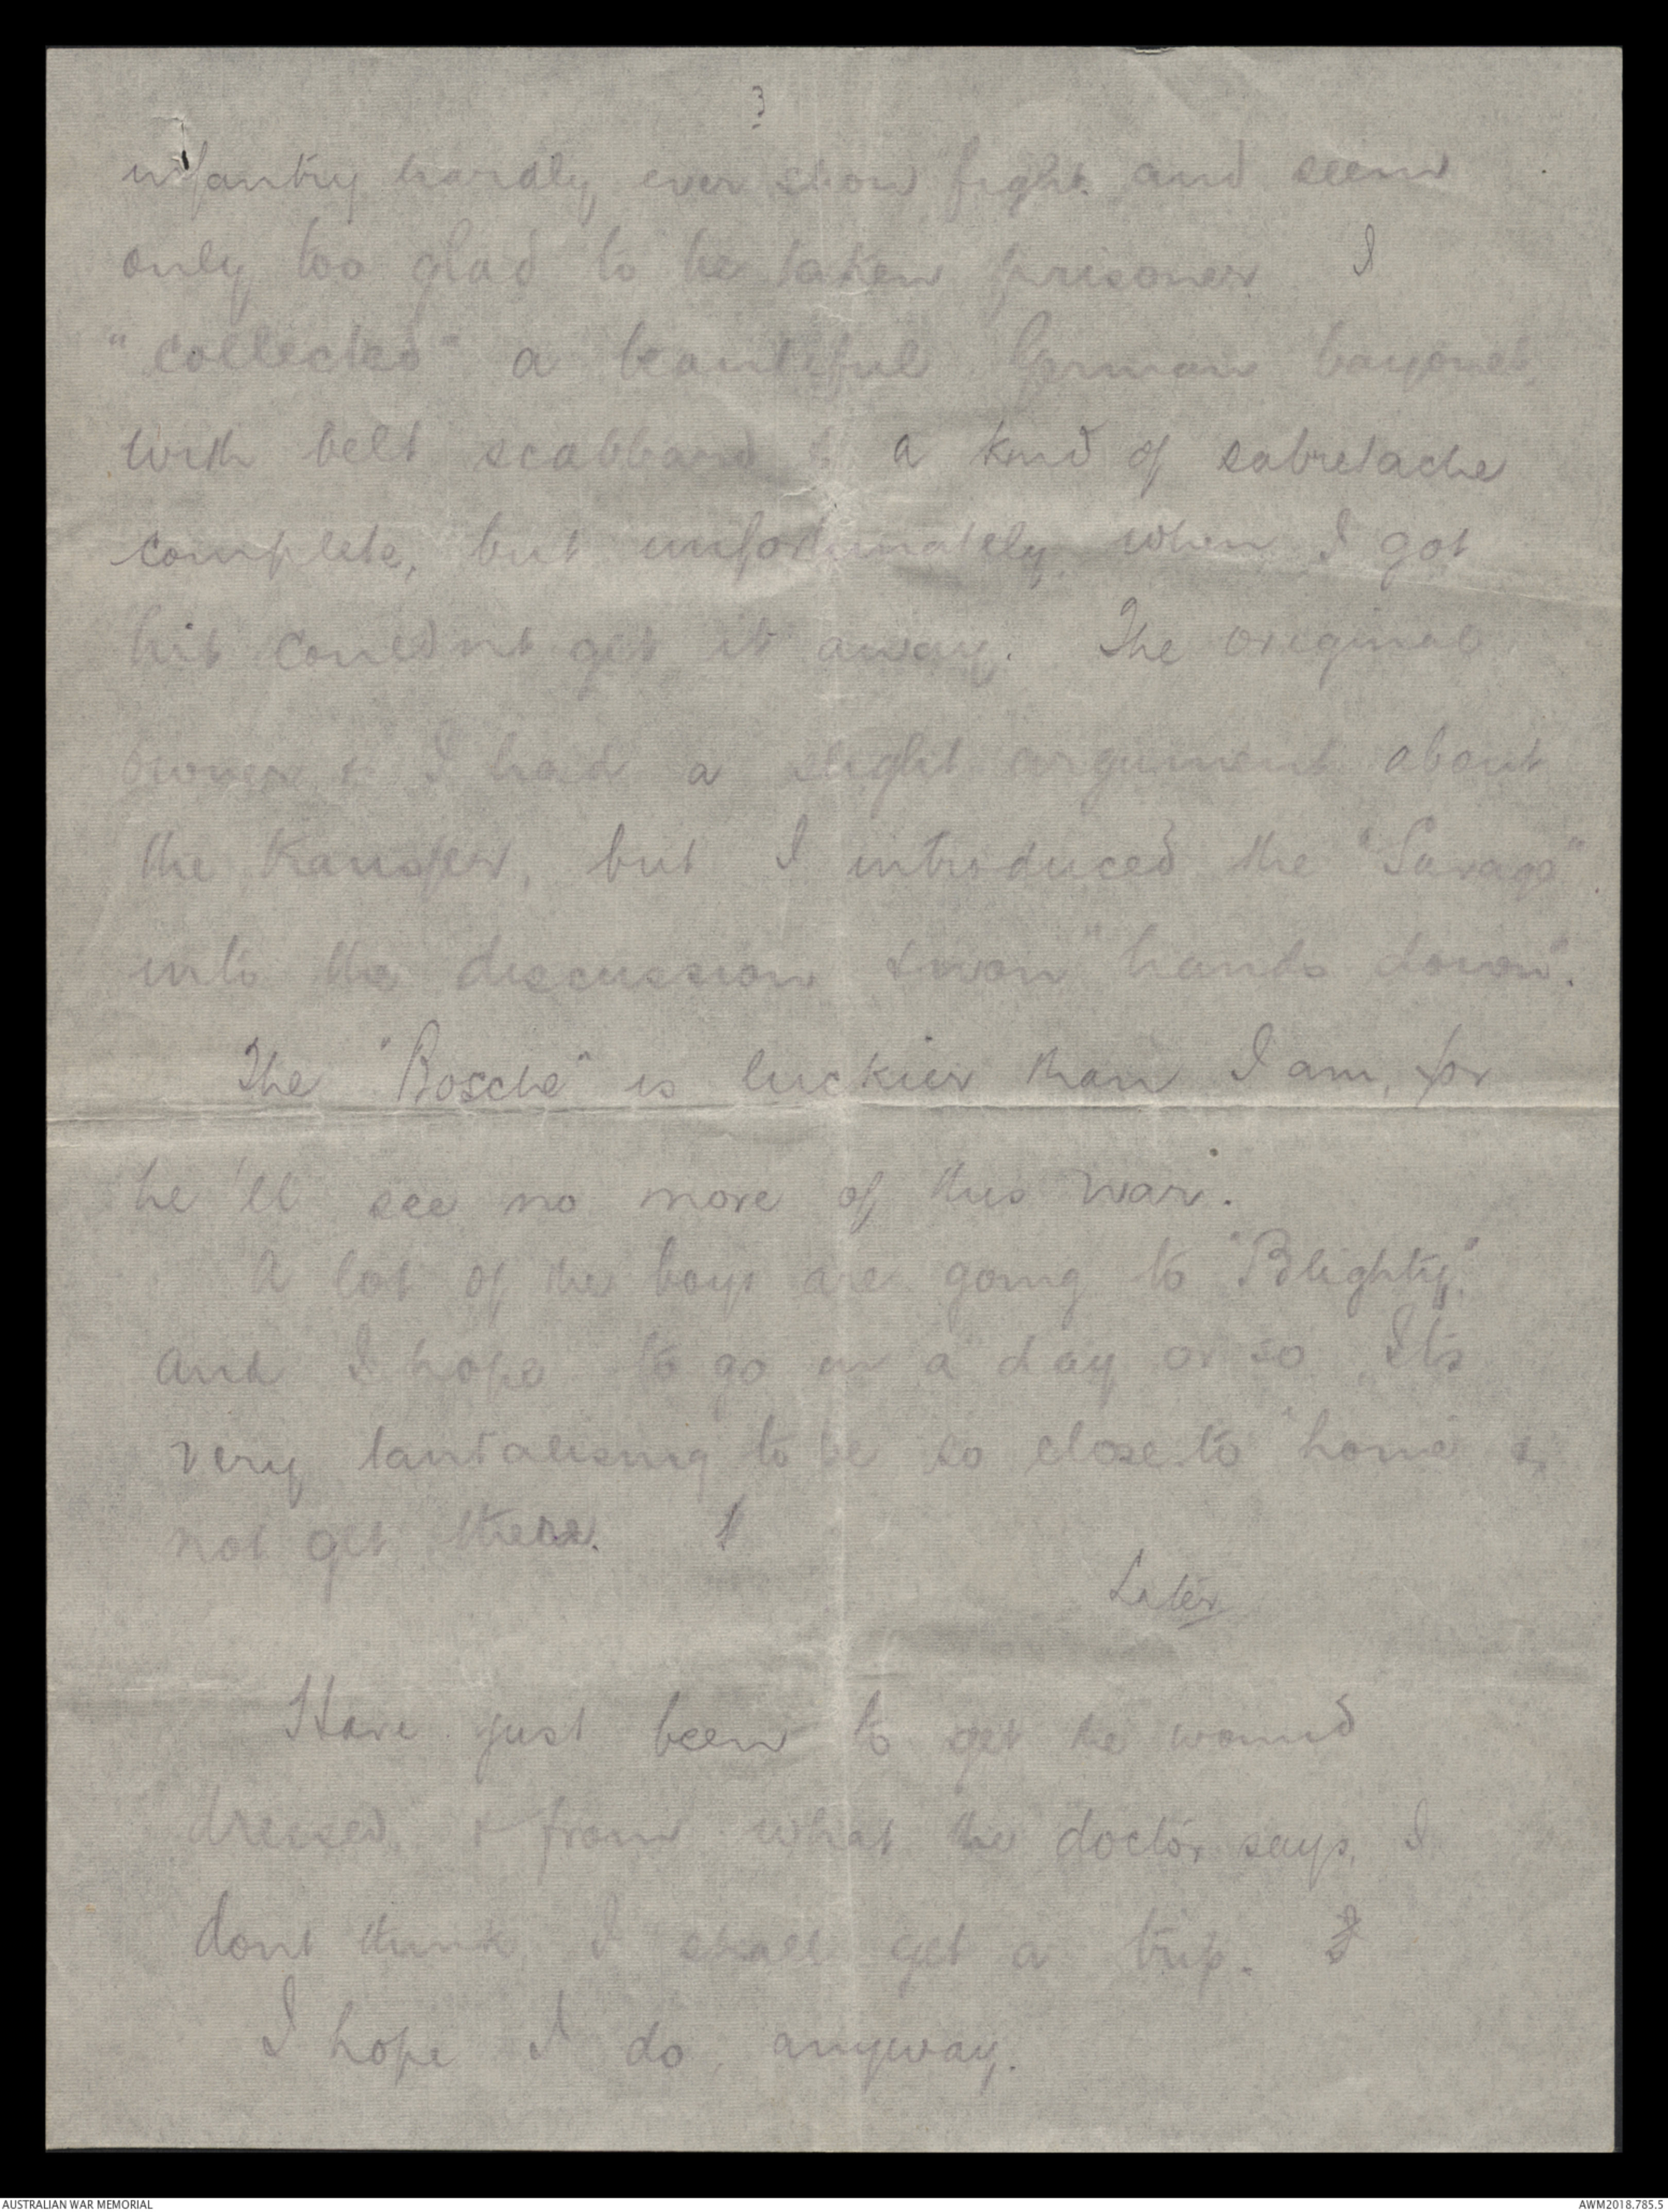 3
infantry hardly ever show fight and seem
only too glad to be taken prisoner. I
"collected" a beautiful German bayonet,
with belt scabbard & a kind of sabretache
complete, but unfortunately when I got
hit couldnt get it away. The original
owner & I had a slight argument about
the transfer, but I introduced the "Savage"
into the discussion & won "hands down".
The "Bosche" is luckier than I am, for
he'll see no more of this war.
A lot of the boys are going to "Blighty"
and I hope to go in a day or so. Its
very tantalising to be so close to "home" &
not get there.
Later
Have just been to get the wound
dressed, & from what the doctor says, I
dont think I shall get a trip.
I hope I do, anyway.
AUSTRALIAN WAR MEMORIAL
AWM2018.785.5